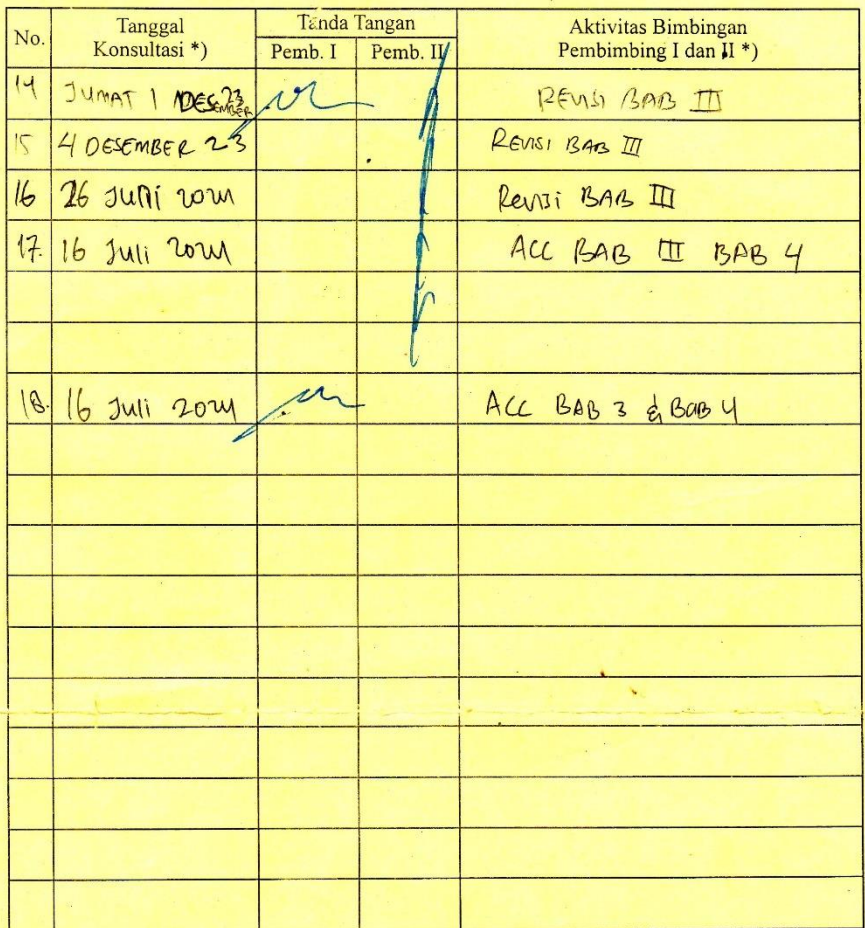 No. Tanggal Konsultasi *) Tanda Tangan Aktivitas Bimbingan Pembimbing I dan II *)
Pemb. I Pemb. II
14 JUMAT 1 DESEMBER 23 REVISI BAB III
15 4 DESEMBER 23 REVISI BAB III
16 26 JUNI 2024 Revisi BAB III
17. 16 Juli 2024 ACC BAB III BAB 4
18. 16 Juli 2024 ACC BAB 3 & BAB 4